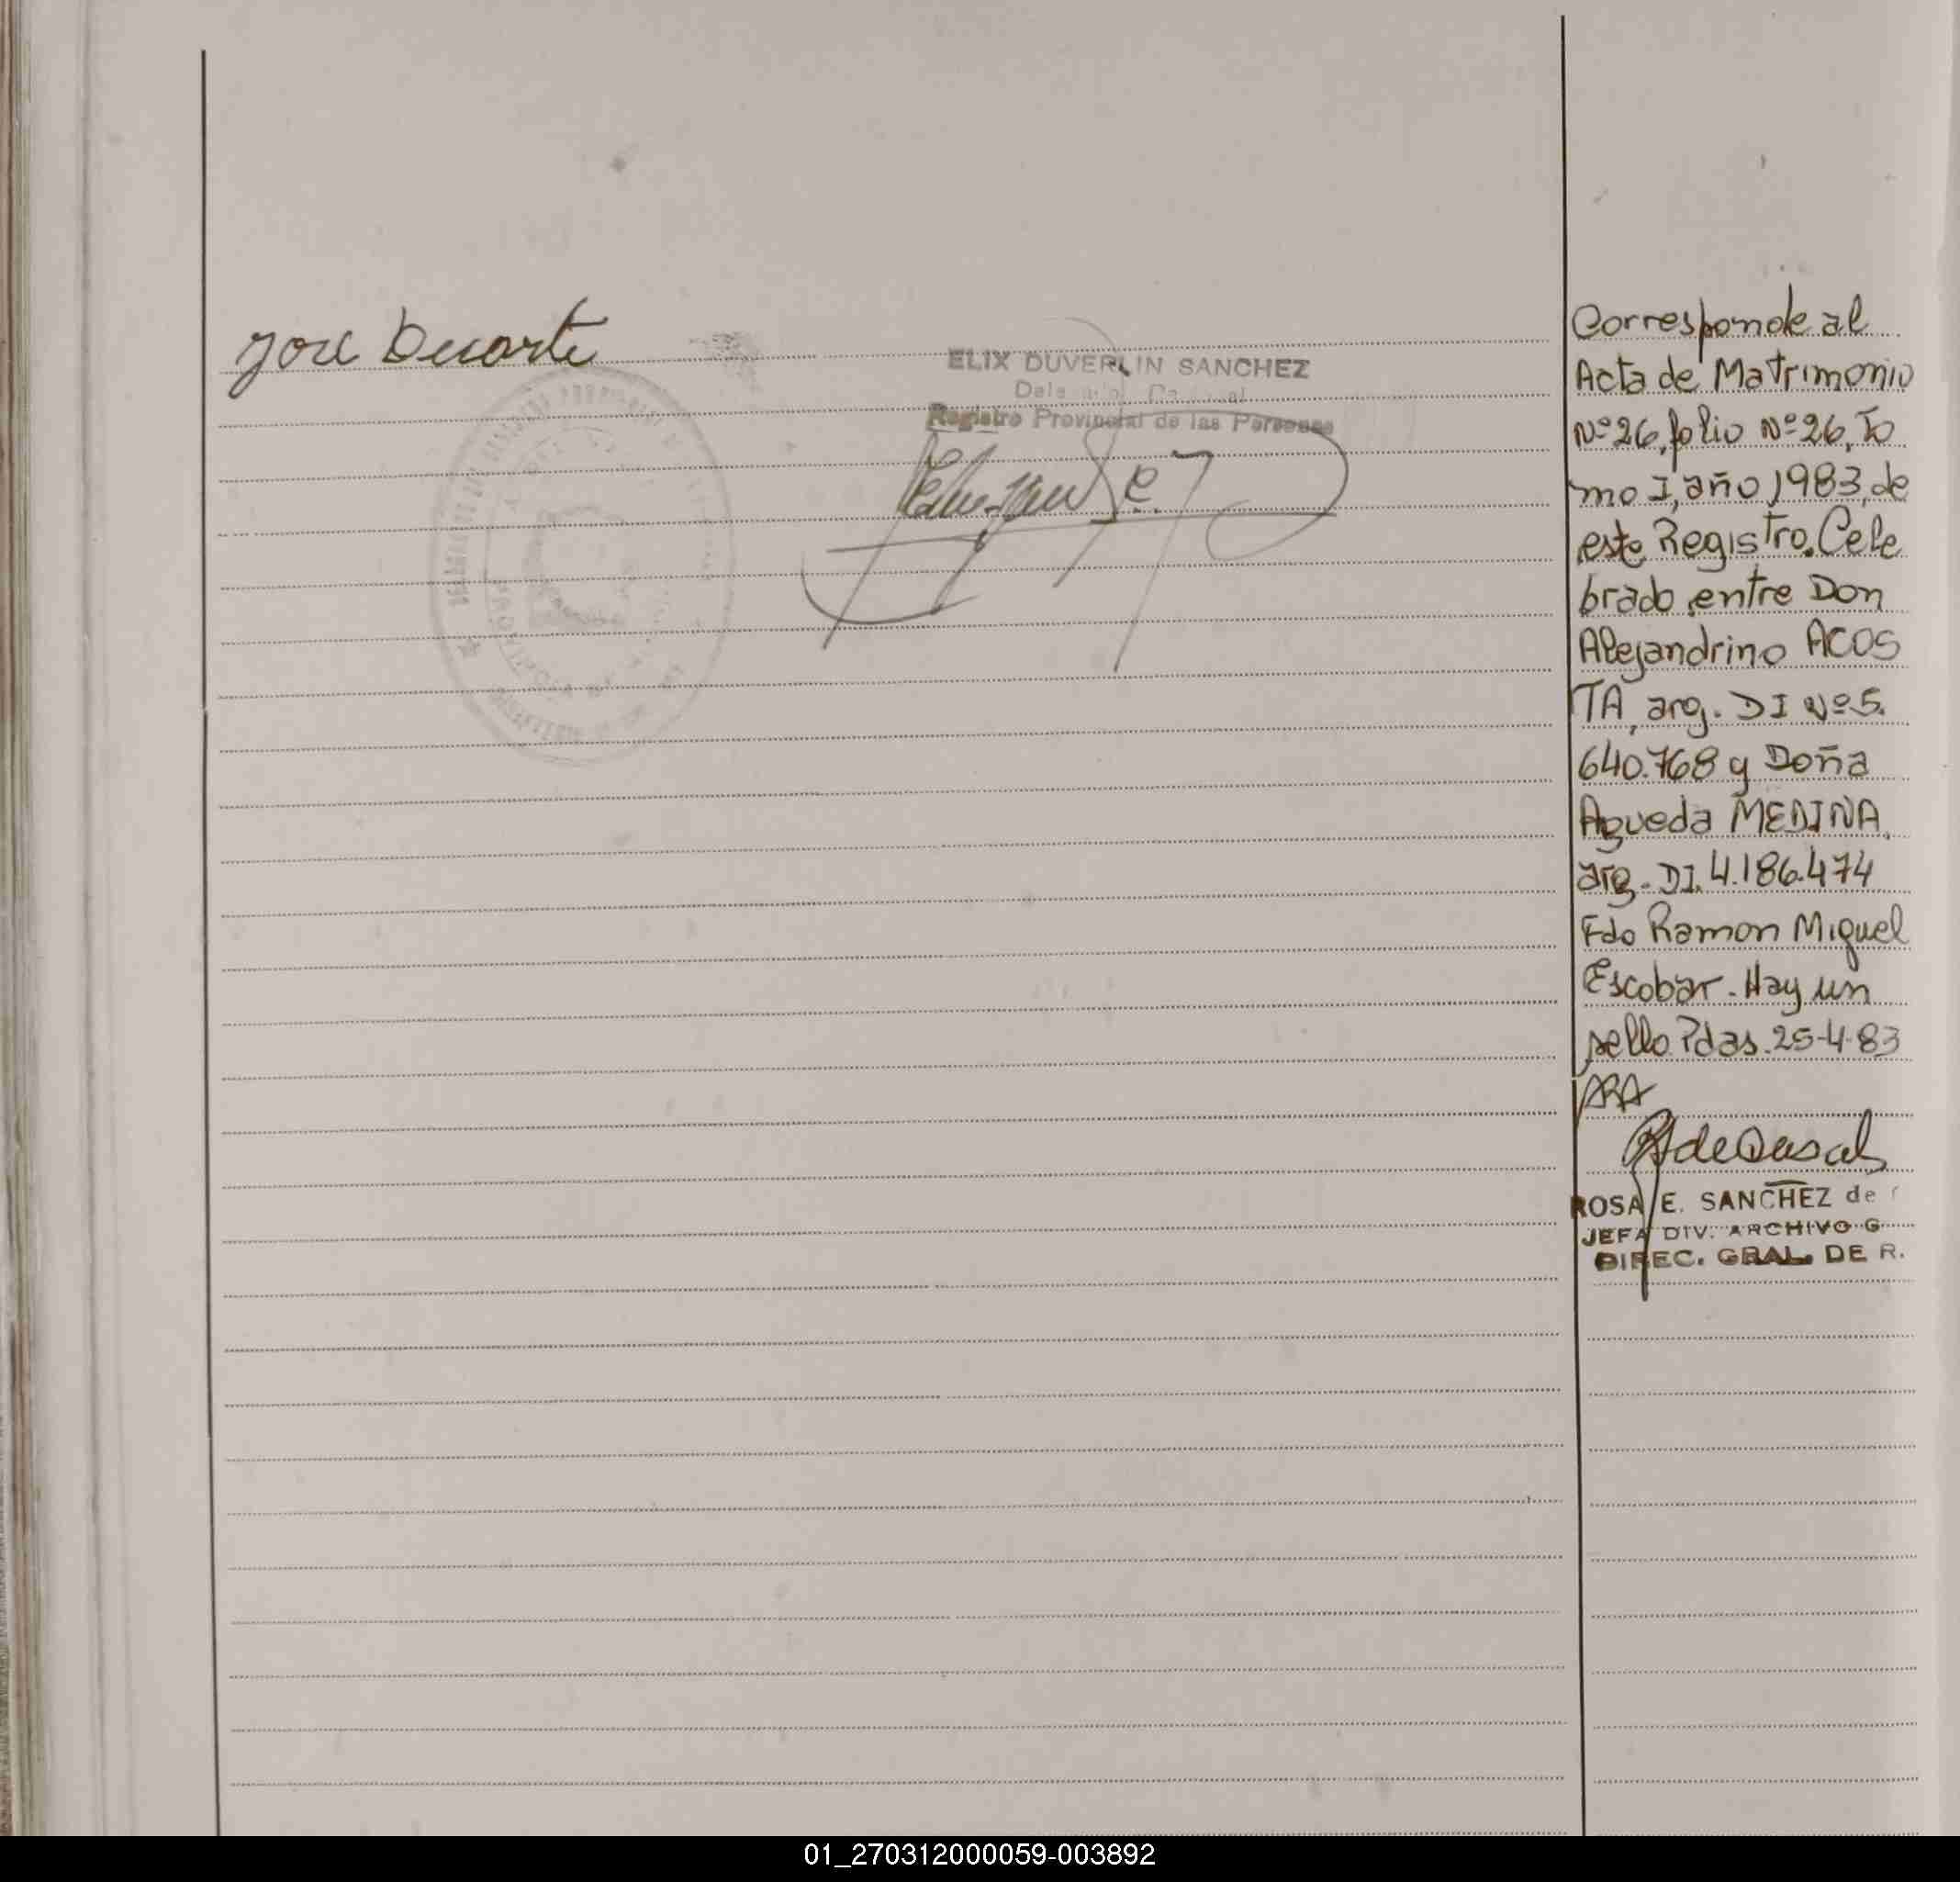 José Duarte
ELIX DUVERLIN SANCHEZ
Registro Provincial de las Personas
Corresponde al
Acta de Matrimonio
Nº 26, folio Nº 26, To
mo I, año 1983, de
este Registro. Cele
brado entre Don
Alejandrino ACOS
TA, arg. DI Nº 5.
640.768 y Doña
Agueda MEDINA,
arg. DI. 4.186.474
Fdo Ramon Miguel
Escobar. Hay un
sello Pdas. 25-4-83
ARA
ROSA E. SANCHEZ de
JEFA DIV. ARCHIVO G
DIREC. GRAL. DE R.
01_270312000059-003892